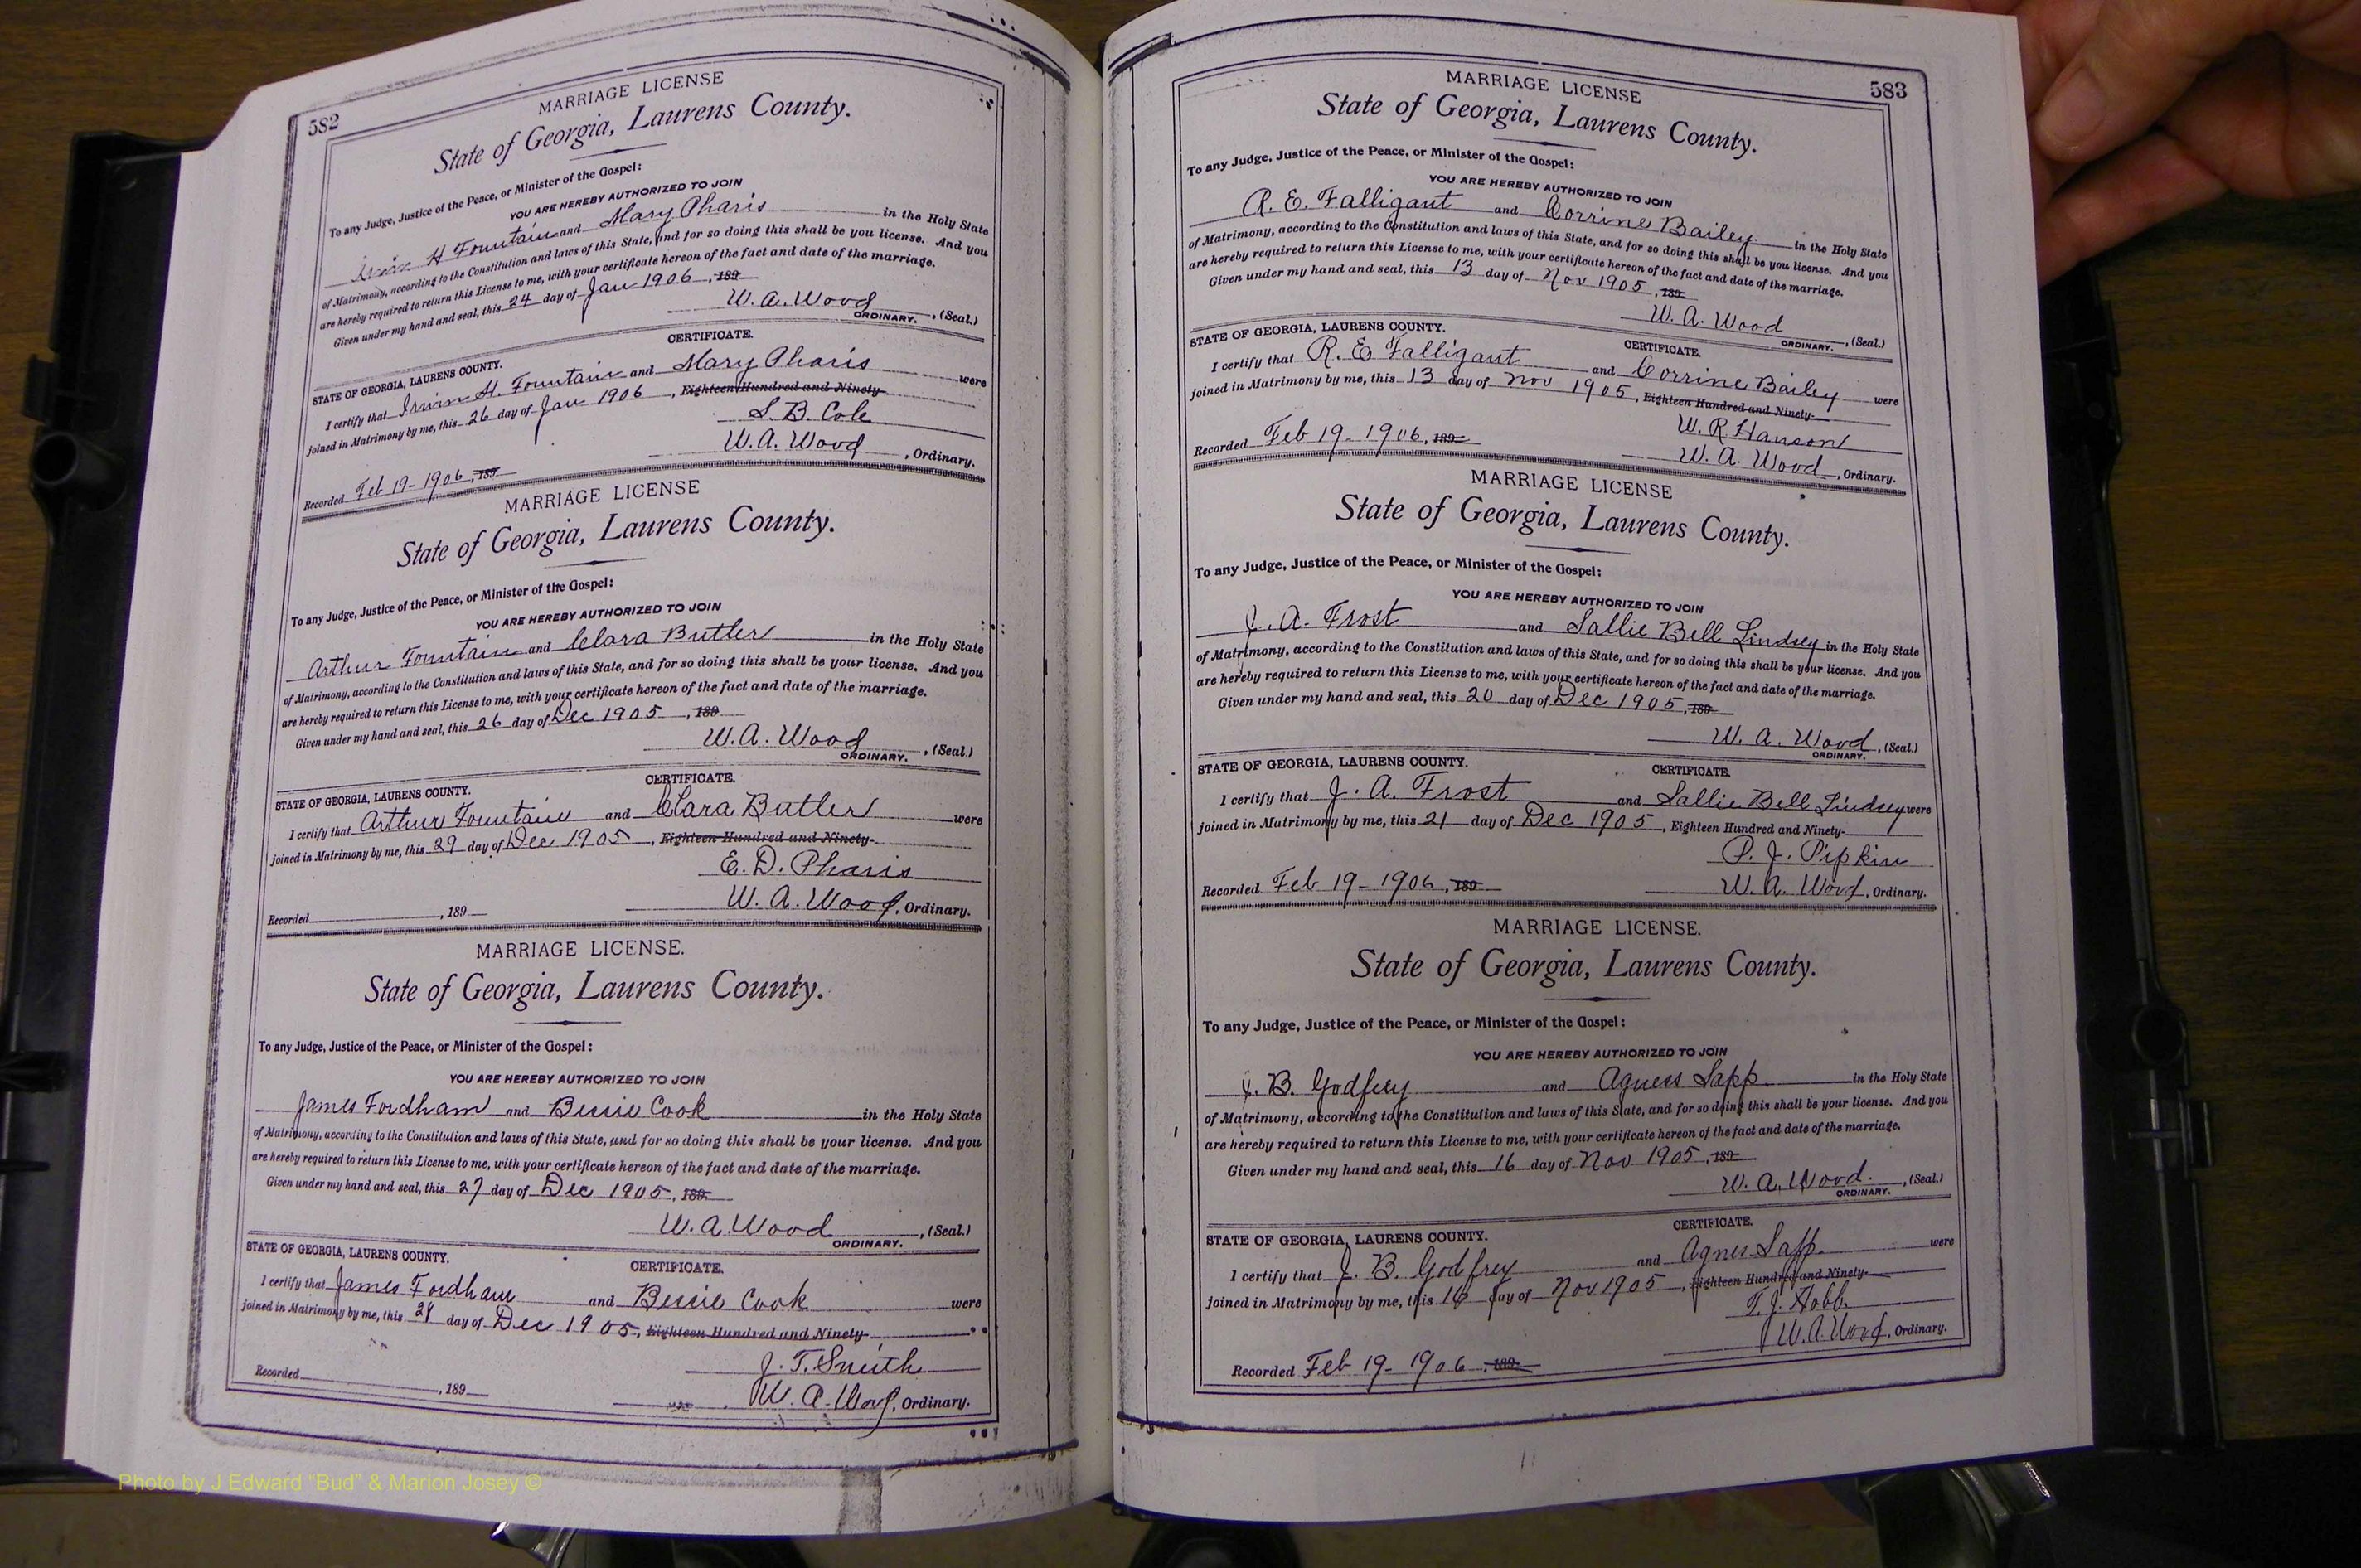 582
MARRIAGE LICENSE
State of Georgia, Laurens County.
To any Judge, Justice of the Peace, or Minister of the Gospel:
YOU ARE HEREBY AUTHORIZED TO JOIN
H Fountain and Mary Pharis in the Holy State
of Matrimony, according to the Constitution and laws of this State, and for so doing this shall be you license. And you
are hereby required to return this License to me, with your certificate hereon of the fact and date of the marriage.
Given under my hand and seal, this 24 day of Jan 1906, 189
W. A. Wood, (Seal.)
ORDINARY.
CERTIFICATE.
STATE OF GEORGIA, LAURENS COUNTY.
I certify that Irwin H. Fountain and Mary Pharis were
joined in Matrimony by me, this 26 day of Jan 1906, Eighteen Hundred and Ninety-
S. B. Cole
W. A. Wood, Ordinary.
Recorded Feb 19 - 1906, 189
MARRIAGE LICENSE
State of Georgia, Laurens County.
To any Judge, Justice of the Peace, or Minister of the Gospel:
YOU ARE HEREBY AUTHORIZED TO JOIN
Arthur Fountain and Clara Butler in the Holy State
of Matrimony, according to the Constitution and laws of this State, and for so doing this shall be your license. And you
are hereby required to return this License to me, with your certificate hereon of the fact and date of the marriage.
Given under my hand and seal, this 26 day of Dec 1905, 189
W. A. Wood, (Seal.)
ORDINARY.
CERTIFICATE.
STATE OF GEORGIA, LAURENS COUNTY.
I certify that Arthur Fountain and Clara Butler were
joined in Matrimony by me, this 29 day of Dec 1905, Eighteen Hundred and Ninety-
E. D. Pharis
W. A. Wood, Ordinary.
Recorded , 189
MARRIAGE LICENSE.
State of Georgia, Laurens County.
To any Judge, Justice of the Peace, or Minister of the Gospel:
YOU ARE HEREBY AUTHORIZED TO JOIN
James Fordham and Bessie Cook in the Holy State
of Matrimony, according to the Constitution and laws of this State, and for so doing this shall be your license. And you
are hereby required to return this License to me, with your certificate hereon of the fact and date of the marriage.
Given under my hand and seal, this 27 day of Dec 1905, 189
W. A. Wood, (Seal.)
ORDINARY.
STATE OF GEORGIA, LAURENS COUNTY.
CERTIFICATE.
I certify that James Fordham and Bessie Cook were
joined in Matrimony by me, this day of Dec 1905, Eighteen Hundred and Ninety-
J. T. Smith
W. A. Wood, Ordinary.
Recorded , 189
583
MARRIAGE LICENSE
State of Georgia, Laurens County.
To any Judge, Justice of the Peace, or Minister of the Gospel:
YOU ARE HEREBY AUTHORIZED TO JOIN
R. E. Falligant and Corrine Bailey in the Holy State
of Matrimony, according to the Constitution and laws of this State, and for so doing this shall be you license. And you
are hereby required to return this License to me, with your certificate hereon of the fact and date of the marriage.
Given under my hand and seal, this 13 day of Nov 1905, 189
W. A. Wood, (Seal.)
ORDINARY.
STATE OF GEORGIA, LAURENS COUNTY.
CERTIFICATE.
I certify that R. E Falligant and Corrine Bailey were
joined in Matrimony by me, this 13 day of Nov 1905, Eighteen Hundred and Ninety-
W. R Hanson
W. A. Wood, Ordinary.
Recorded Feb 19 - 1906, 189
MARRIAGE LICENSE
State of Georgia, Laurens County.
To any Judge, Justice of the Peace, or Minister of the Gospel:
YOU ARE HEREBY AUTHORIZED TO JOIN
J. A. Frost and Sallie Bell Lindsey in the Holy State
of Matrimony, according to the Constitution and laws of this State, and for so doing this shall be your license. And you
are hereby required to return this License to me, with your certificate hereon of the fact and date of the marriage.
Given under my hand and seal, this 20 day of Dec 1905, 189
W. A. Wood, (Seal.)
ORDINARY.
STATE OF GEORGIA, LAURENS COUNTY.
CERTIFICATE.
I certify that J. A. Frost and Sallie Bell Lindsey were
joined in Matrimony by me, this 21 day of Dec 1905, Eighteen Hundred and Ninety-
P. J. Pipkin
Recorded Feb 19 - 1906, 189 W. A. Wood, Ordinary.
MARRIAGE LICENSE.
State of Georgia, Laurens County.
To any Judge, Justice of the Peace, or Minister of the Gospel:
YOU ARE HEREBY AUTHORIZED TO JOIN
J. B. Godfrey and Agness Sapp in the Holy State
of Matrimony, according to the Constitution and laws of this State, and for so doing this shall be your license. And you
are hereby required to return this License to me, with your certificate hereon of the fact and date of the marriage.
Given under my hand and seal, this 16 day of Nov 1905, 189
W. A. Wood. , (Seal.)
ORDINARY.
CERTIFICATE.
STATE OF GEORGIA, LAURENS COUNTY.
I certify that J. B. Godfrey and Agnes Sapp were
joined in Matrimony by me, this 16 day of Nov 1905, Eighteen Hundred and Ninety-
T. J. Hobb
W. A. Wood, Ordinary.
Recorded Feb 19 - 1906, 189
Photo by J Edward "Bud" & Marion Josey ©